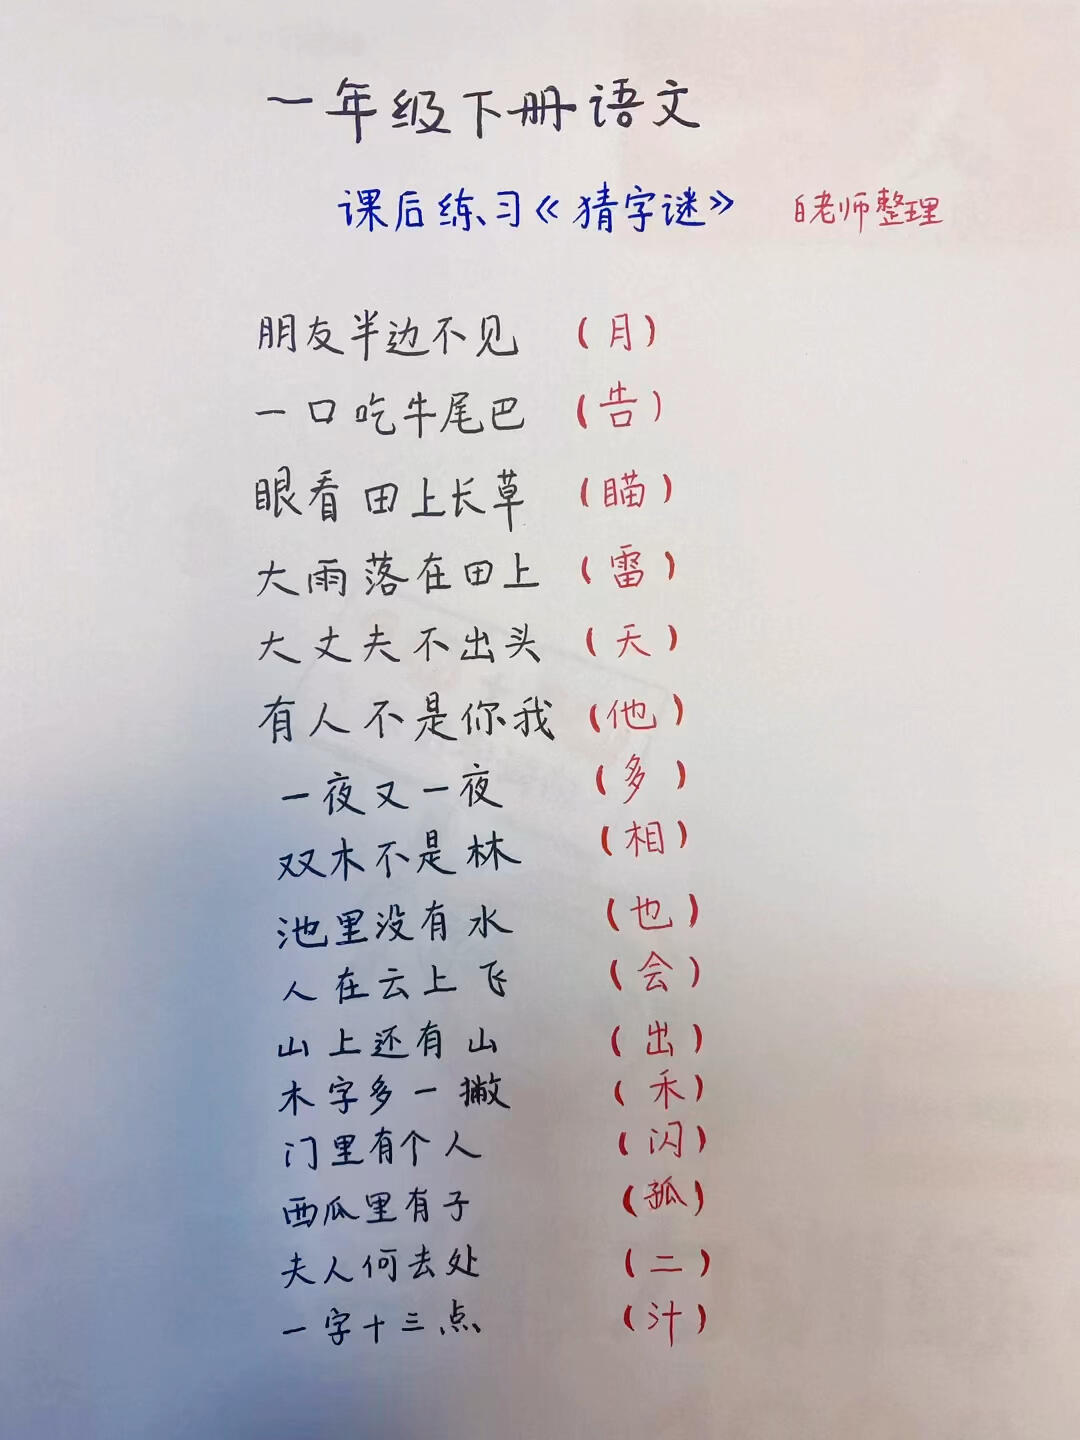 一年级下册语文
课后练习《猜字谜》 白老师整理
朋友半边不见 (月)
一口吃牛尾巴 (告)
眼看田上长草 (瞄)
大雨落在田上 (雷)
大丈夫不出头 (天)
有人不是你我 (他)
一夜又一夜 (多)
双木不是林 (相)
池里没有水 (也)
人在云上飞 (会)
山上还有山 (出)
木字多一撇 (禾)
门里有个人 (闪)
西瓜里有子 (孤)
夫人何去处 (二)
一字十三点 (汁)